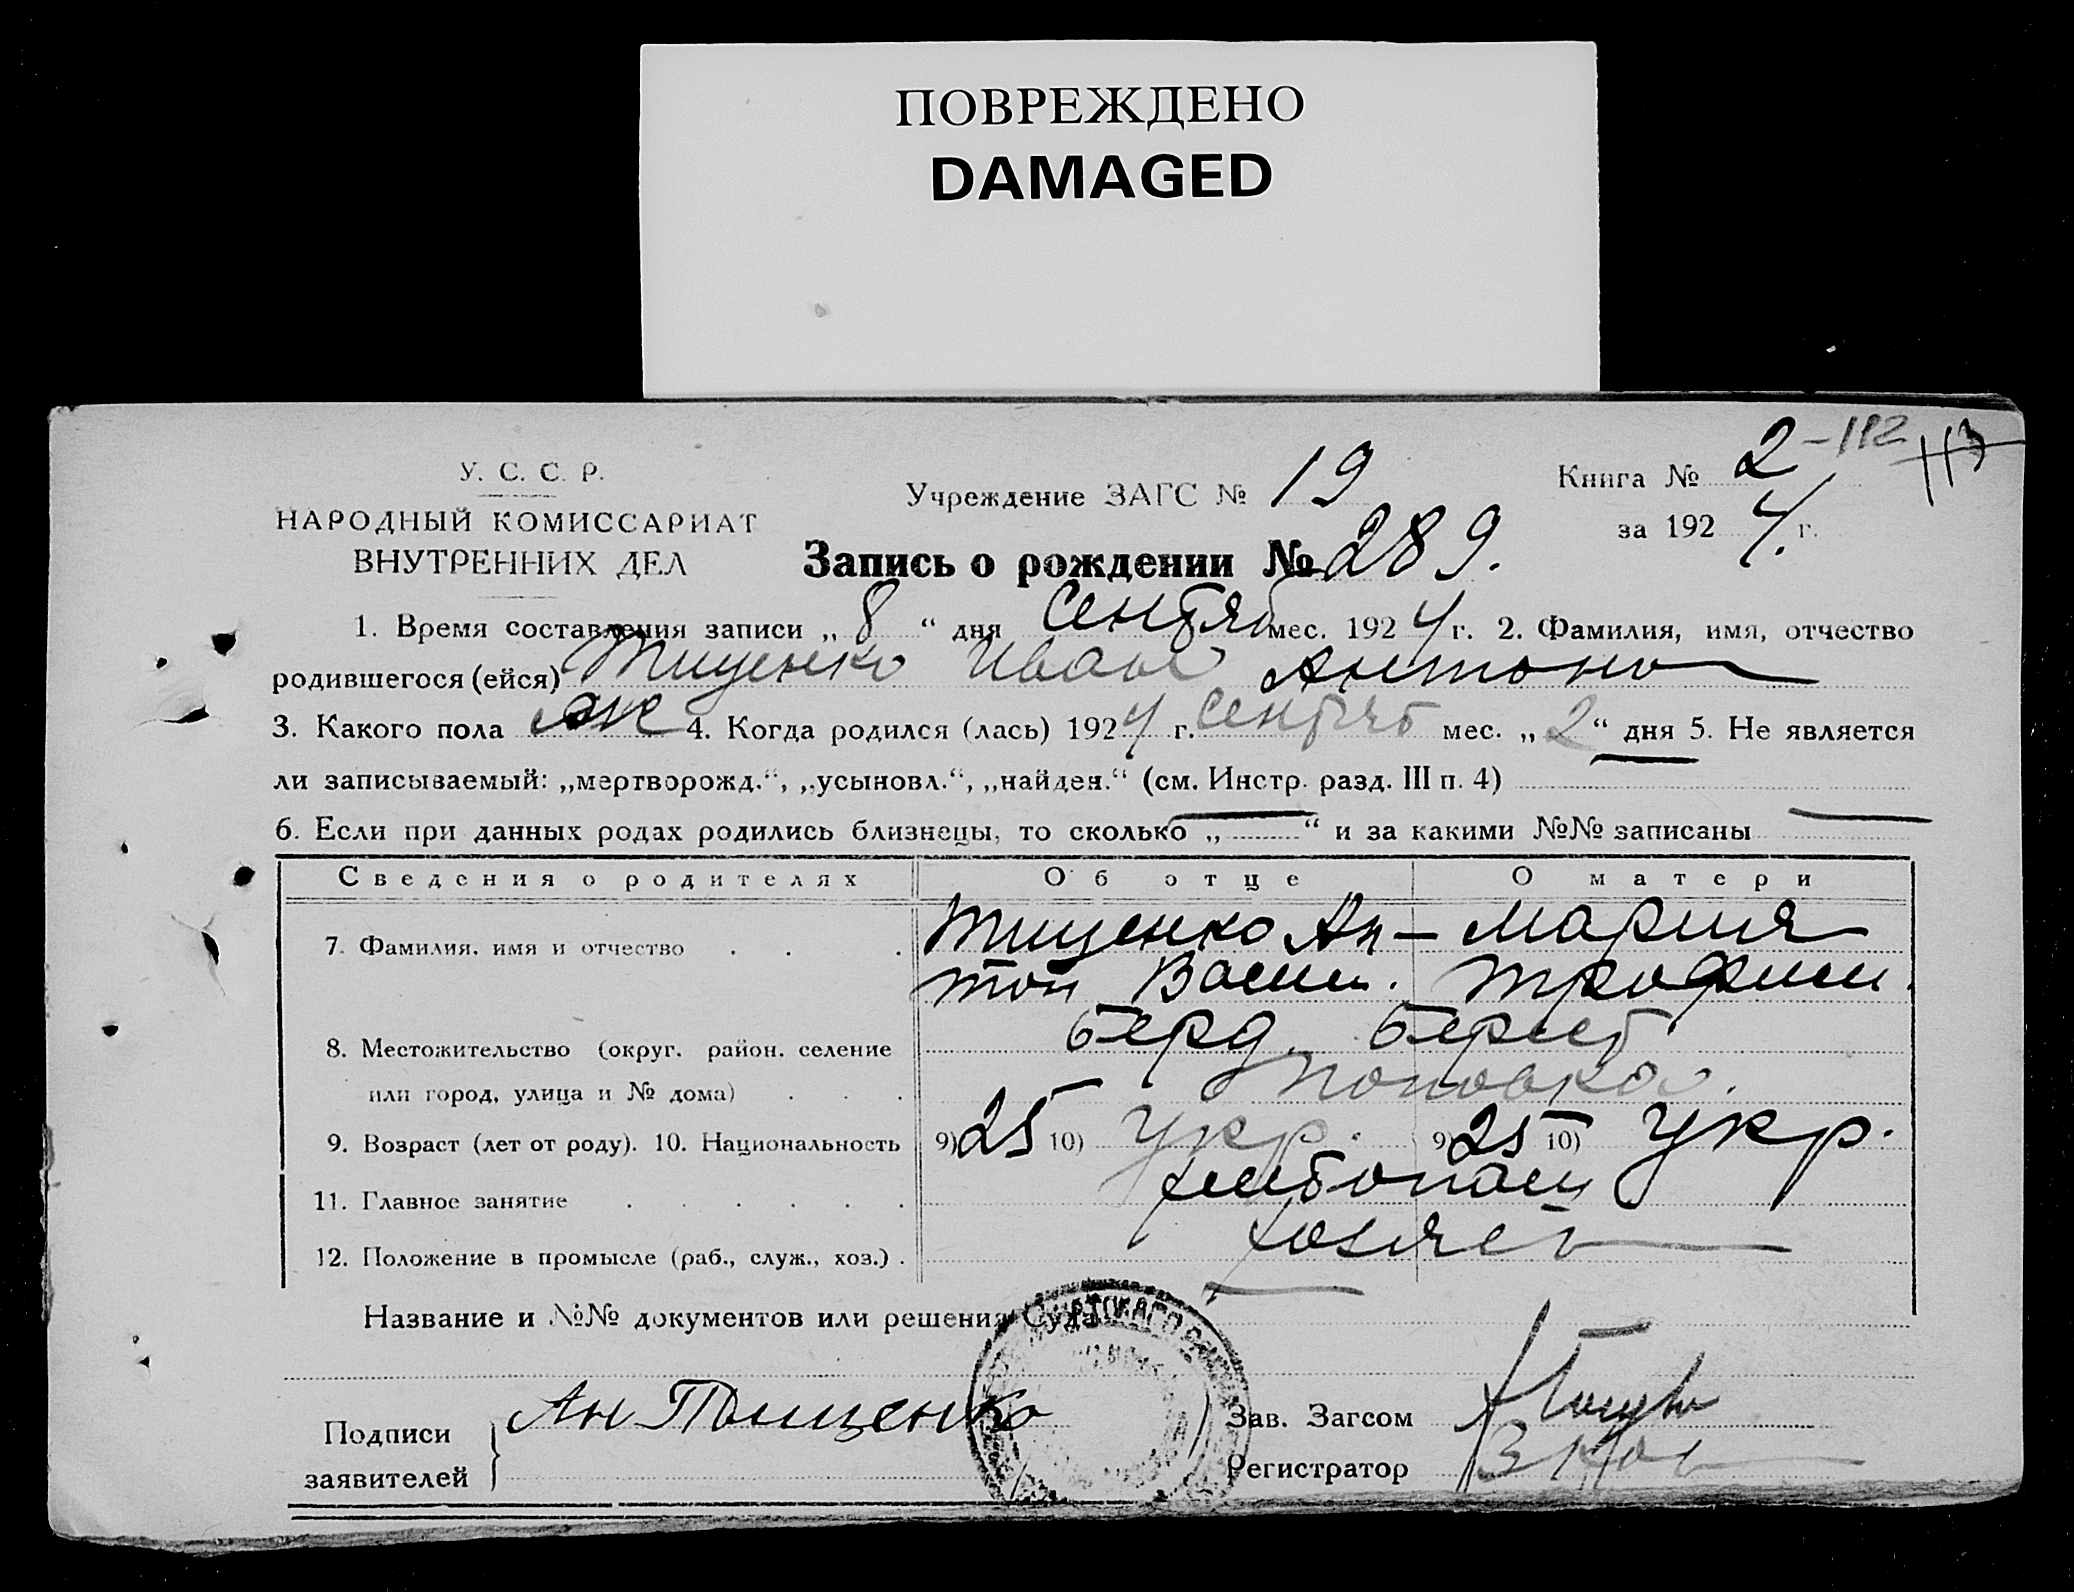 ПОВРЕЖДЕНО
DAMAGED
У. С. С. Р.
НАРОДНЫЙ КОМИССАРИАТ
ВНУТРЕННИХ ДЕЛ
Учреждение ЗАГС № 19
Книга № 2 - 112 113
за 1924 г.
Запись о рождении № 289.
1. Время составления записи „ 8 “ дня Сентяб мес. 1924 г. 2. Фамилия, имя, отчество
родившегося (ейся) Тищенко Иван Антоно
3. Какого пола 4. Когда родился (лась) 1924 г. Сентяб мес. „ 2 “ дня 5. Не является
ли записываемый: „мертворожд.“, „усыновл.“, „найден.“ (см. Инстр. разд. III п. 4)
6. Если при данных родах родились близнецы, то сколько „ — “ и за какими №№ записаны —
Сведения о родителях Об отце О матери
7. Фамилия, имя и отчество Тищенко Ан- Мария
тон Васил. Трофим.
8. Местожительство (округ. район. селение Берд.
или город, улица и № дома) Поповка
9. Возраст (лет от роду). 10. Национальность 9) 25 10) Укр. 9) 25 10) Укр.
11. Главное занятие хлебопаш
12. Положение в промысле (раб., служ., хоз.) хозяев
Название и №№ документов или решения Суда
Подписи заявителей Ан Тищенко
Зав. Загсом
Регистратор